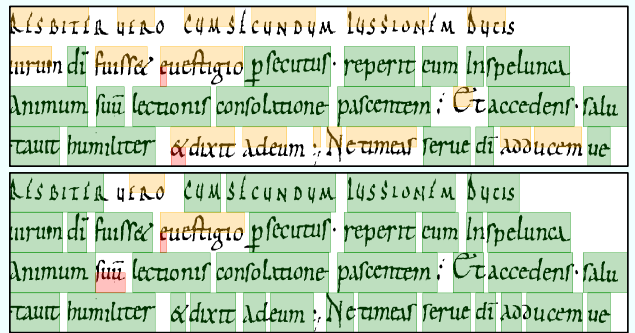 RESBITER UERO CUM SECUNDUM IUSSIONEM DUCIS
uirum di fuisse euestigio psecutus · reperit eum Inspelunca
Animum suū lectionis consolatione pascentem ; Et accedens · salu
tauit humiliter & dixit Adeum ; Ne timeas serue di adducem ue
RESBITER UERO CUM SECUNDUM IUSSIONEM DUCIS
uirum di fuisse euestigio psecutus · reperit eum Inspelunca
Animum suū lectionis consolatione pascentem ; Et accedens · salu
tauit humiliter & dixit Adeum ; Ne timeas serue di adducem ue